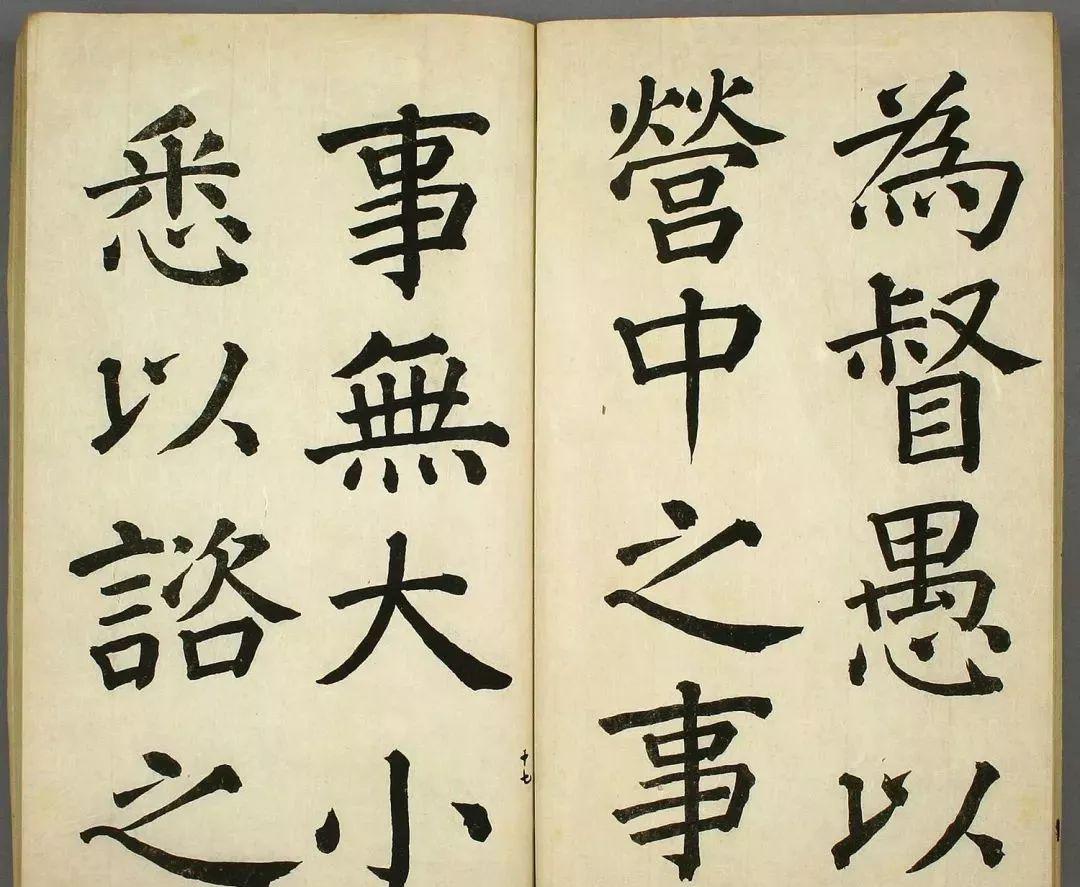 為督愚以
營中之事
十七
事無大小
悉以諮之